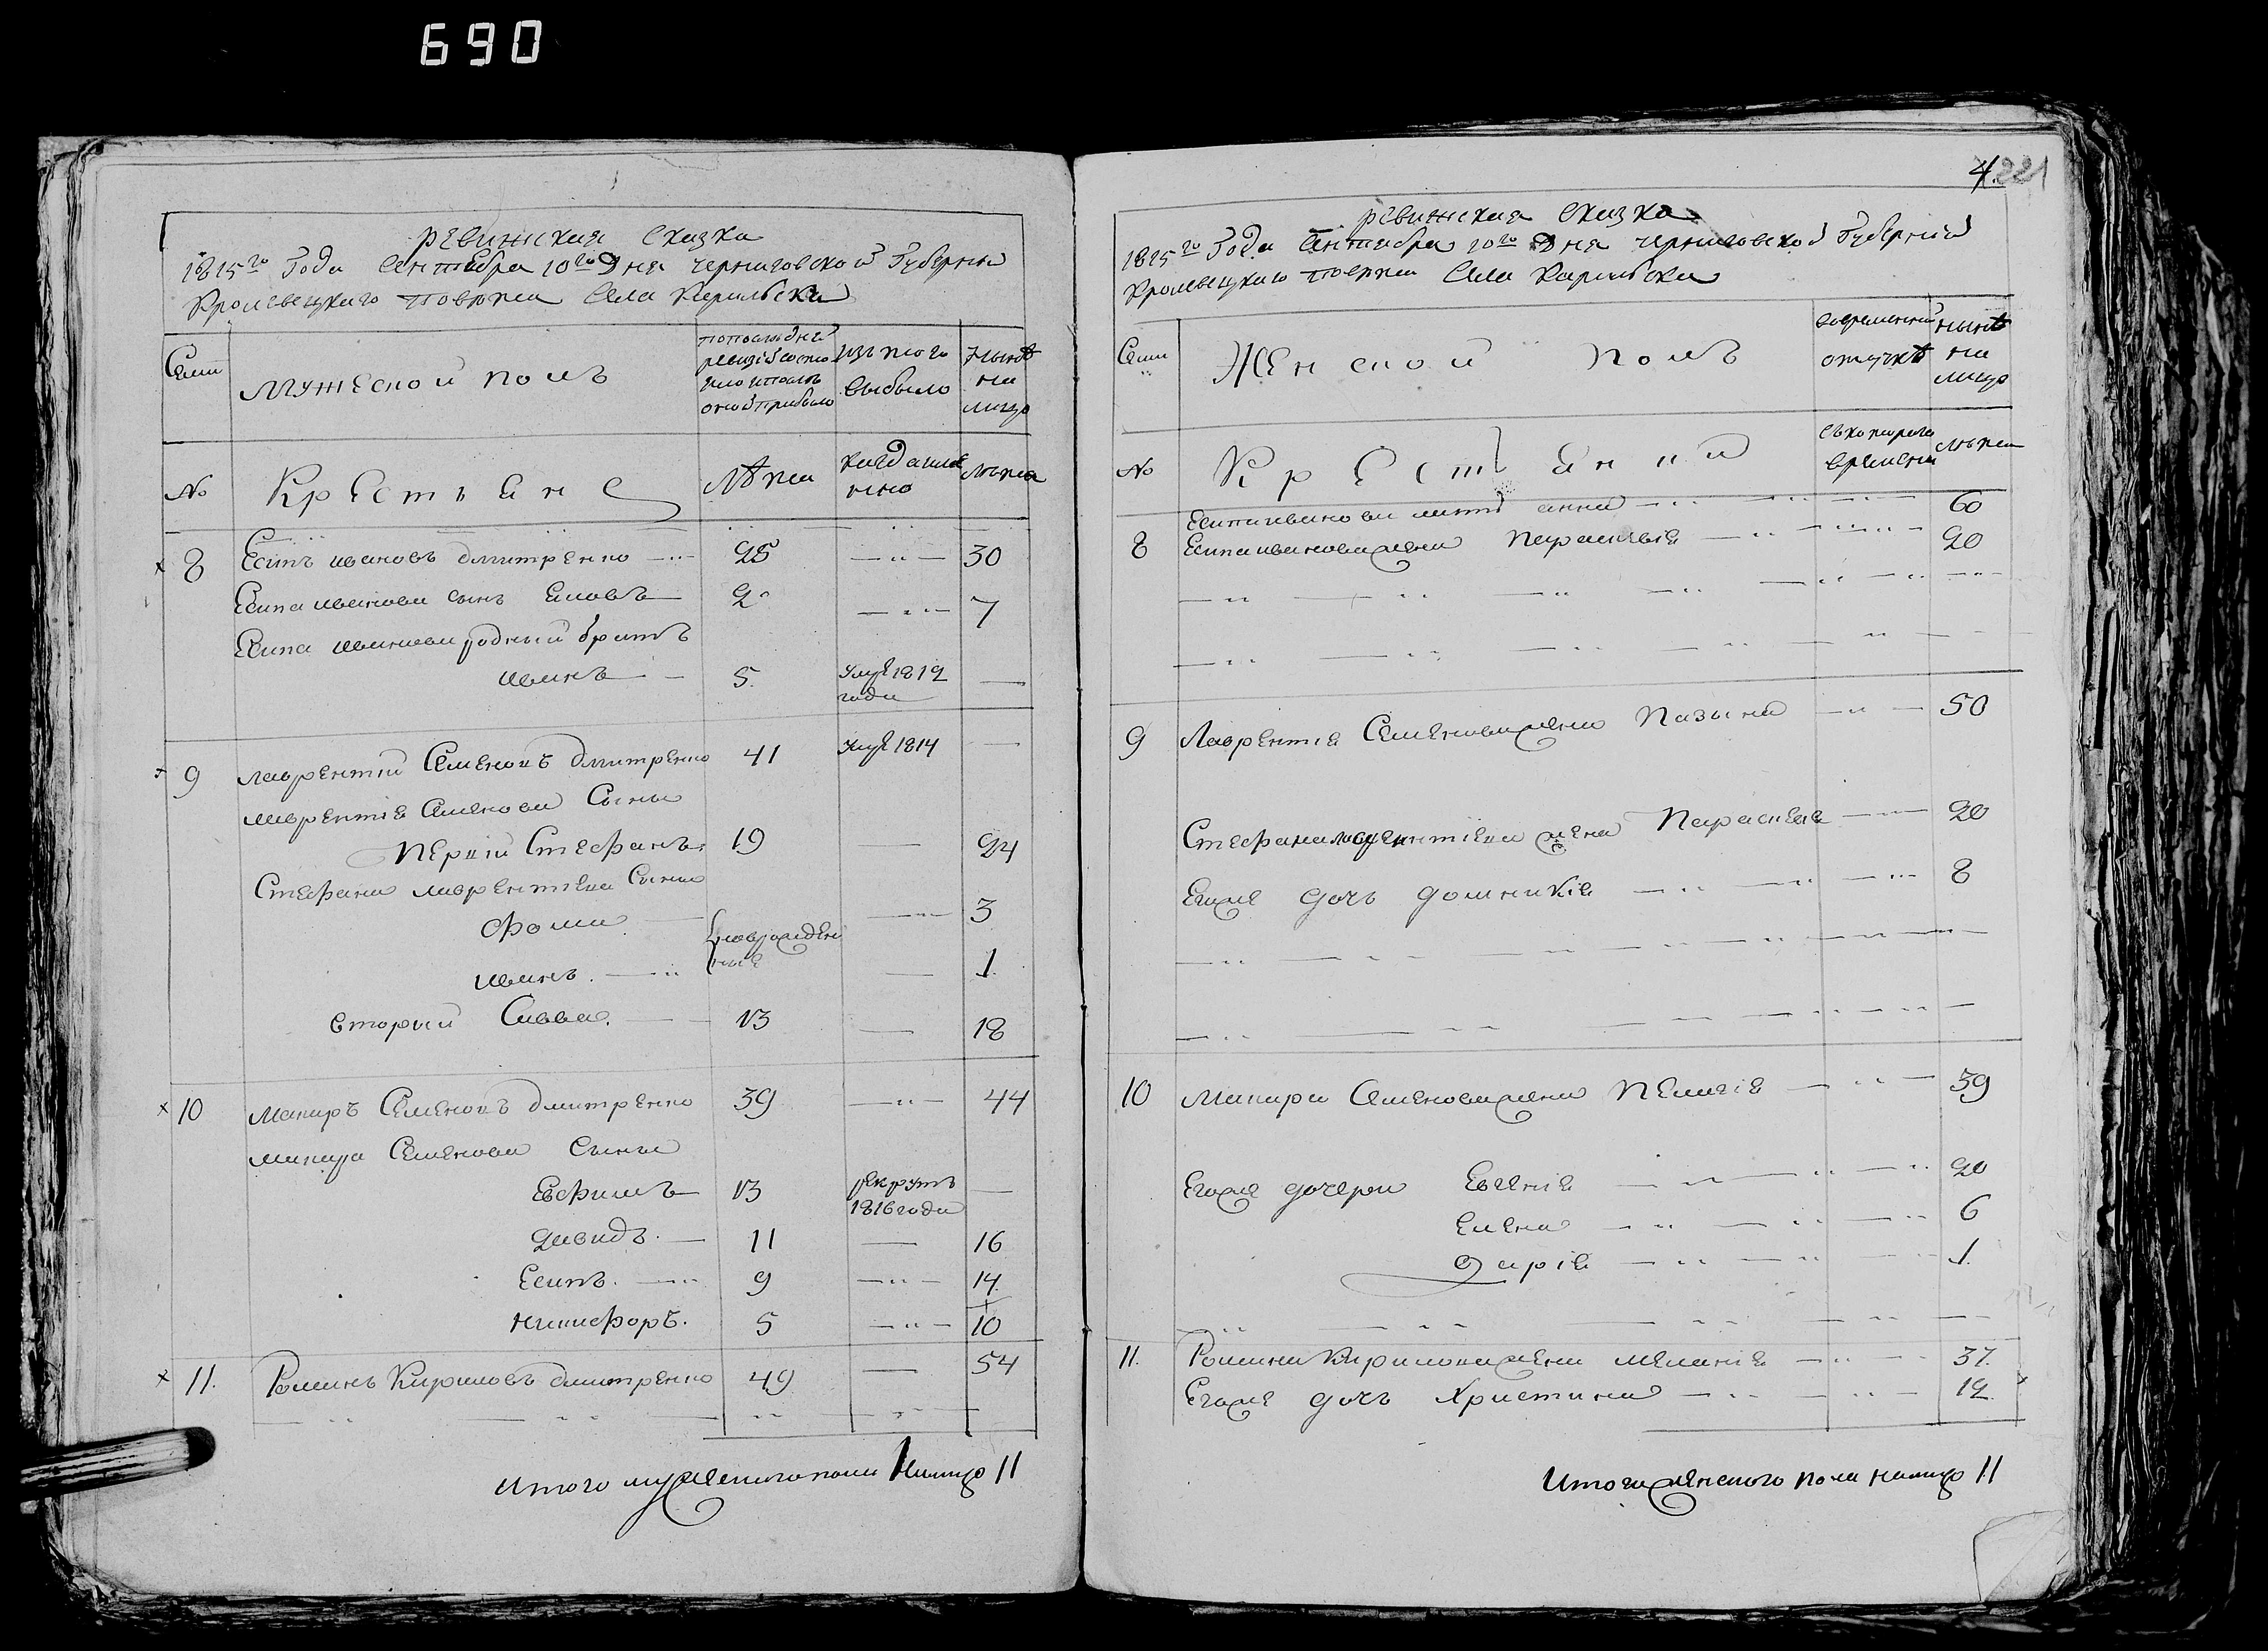 690
ревижская сказка
1815го Года Сентебра 10го Дня черниговской Губернии
Кролевецкаго повѣта Села Карильска
Семи
Мужеской полъ
попоследней
ревизїи состо
яло и после
оной прибыло
изъ того
выбыло
Нынѣ
на
лицо
№
Крестьяне
Лѣта
когда имен
но
лѣта
8
Есипъ ивановъ дмитренко
25
30
Есипа иванова сынъ Еловъ
2
7
Есипа иванова родный братъ
иванъ
5.
Умре 1812
года
9
лаврентий Семеновъ дмитренко
41
Умре 1814
лаврентїя Семенова Сыны
первїй Стефанъ
19
24
Стефана лаврентїева Сыны
Фома
новорожден
ные
3
иванъ.
1.
вторый Савва.
13
18
10
Макаръ Семеновъ дмитренко
39
44
макара Семенова Сыны
Евфимъ
13
рекрутъ
1816 года
давидъ.
11
16
Есипъ.
9
14.
никифоръ.
5
10
11.
Романъ Кириловъ дмитренко
49
54
Итого мужеского пола Налицо 11
4. 221
ревижская сказка
1815го Года Сентебра 10го Дня черниговской Губернии
Кролевецкаго повѣта Села Карильска
Семи
Женской полъ
вовременной
отлучкѣ
нынѣ
на
лицо
№
Крестьянки
съ котораго
времени
лѣта
Есипа иванова мать анна
60
8
Есипа иванова жена Параскевїя
20
9
Лаврентїя Семенова жена Пазына
50
Стефана лаврентїева жена Параскевїя
20
Егоже дочь домникїя
8
10
Макара Семенова жена Пелагїя
39
Егоже дочери Евгенїя
20
Елена
6
Дарїя
1.
11.
Романа Кирилова жена меланїя
37.
Егоже дочь Христина
12.
Итого женского пола налицо 11